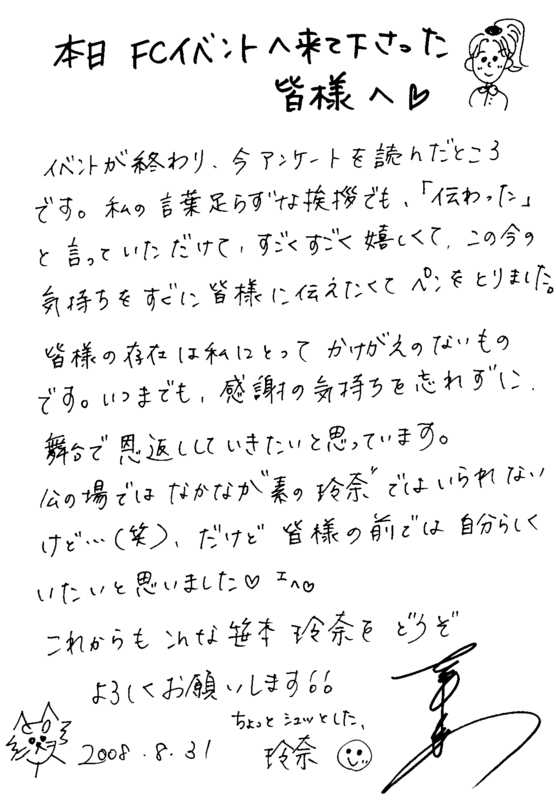 本日 FCイベントへ来て下さった
皆様へ♡
イベントが終わり、今アンケートを読んだところ
です。私の言葉足らずな挨拶でも、「伝わった」
と言っていただけて、すごくすごく嬉しくて、この今の
気持ちをすぐに皆様に伝えたくてペンをとりました。
皆様の存在は私にとってかけがえのないもの
です。いつまでも、感謝の気持ちを忘れずに、
舞台で恩返ししていきたいと思っています。
公の場ではなかなか“素の玲奈”ではいられない
けど…(笑)、だけど皆様の前では自分らしく
いたいと思いました♡ エヘ♡
これからもこんな笹本玲奈をどうぞ
よろしくお願いします
ちょっとシュッとした、
2008.8.31 玲奈